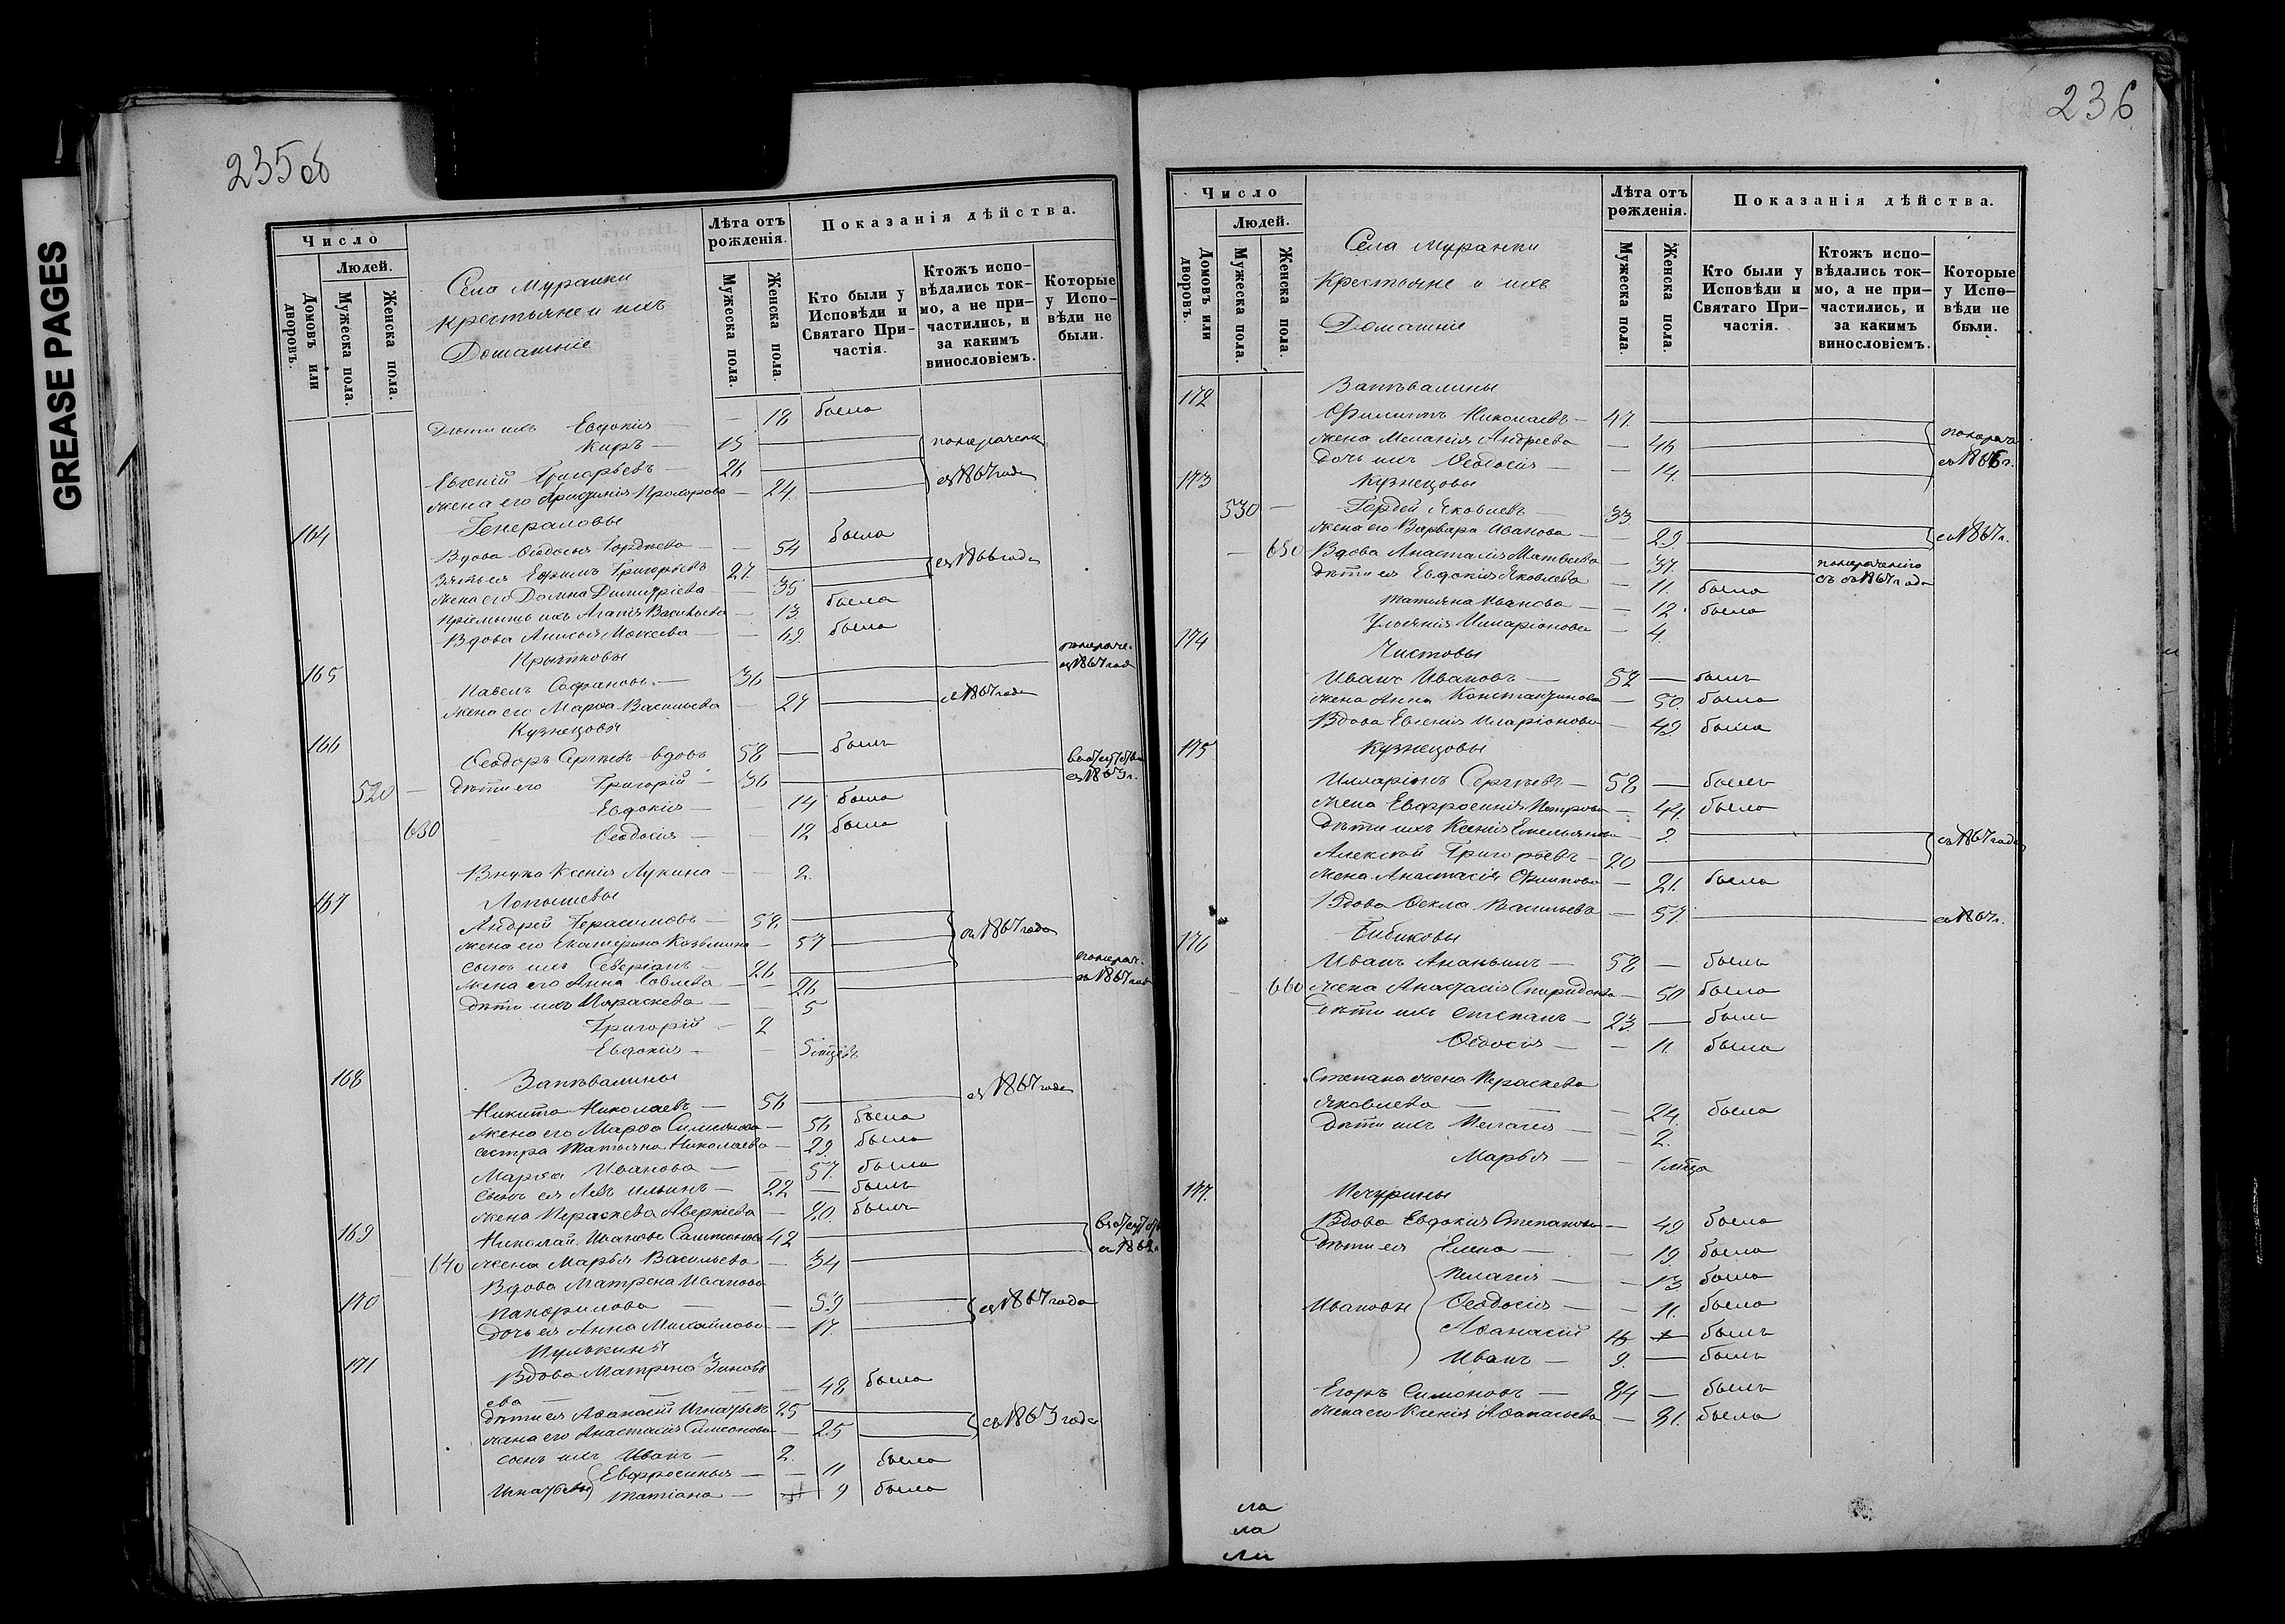 GREASE PAGES
235об
Число
Людей.
Домовъ или дворовъ.
Мужеска пола.
Женска пола.
Села Муранки
крестьяне и ихъ
Домашніе
Лѣта отъ рожденія.
Мужеска пола.
Женска пола.
Показанія дѣйства.
Кто были у Исповѣди и Святаго Причастія.
Ктожъ исповѣдались токмо, а не причастились, и за какимъ винословіемъ.
Которые у Исповѣди не были.
Дѣти ихъ Евдокія — 18 была
Киръ — 15
Евгеній Григорьевъ — 26 съ 1867 года
жена его Прохорова — 24.
164 Генераловы
Вдова Ѳеодосія Гордѣева — 54 была
Зять ея Ефимъ Григорьевъ 27. съ 1866 года
жена его Домна Димитріева — 35
Васильева — 13. была
Вдова Анисья Моисева — 69. была
165 Крытковы
Павелъ Софроновъ — 36 съ 1867 года
жена его Марѳа Васильева — 27 съ 1867 года
166 Кузнецовы
Ѳеодоръ Сергѣевъ вдовъ 58 — былъ
520 — Дѣти его Григорій — 36 съ 1863 г.
Евдокія — 14 была
630 Ѳеодосія — 12 была
Внука Ксенія Лукина — 2.
167 Лопышевы
Андрей Герасимовъ — 58. съ 1867 года
жена его Екатерина Козьмина — 57
сынъ ихъ Северіанъ — 26
жена его Анна Савлева — 26 съ 1867 года
Дѣти ихъ Параскева — 5
Григорій — 2
Евдокія — 5
168 Запѣвалины
Никита Николаевъ — 56 съ 1867 года
жена его Марѳа Симеонова — 56 была
сестра Татьяна Николаева — 29. была
Марѳа Иванова — 57. была
сынъ ея Левъ Ильинъ — 22 — былъ
жена Параскева Аверкіева — 20. былъ
169 Николай Ивановъ 42
640 жена Марья Васильева — 34
Вдова Матрена Иванова
170 Панфилова — 59 съ 1867 года
дочь ея Анна Михайлова — 17.
171 Пулькины
Вдова Матрена Зиновь
ева — 48 была
Дѣти ея Аѳанасій Игнатьевъ 25 съ 1863 года
жена его Анастасія Симеонова — 25
сынъ ихъ Иванъ — 2.
Евфросинья — 11 была
Игнатьевы Татіана — 9 была
236
Число
Людей.
Домовъ или дворовъ.
Мужеска пола.
Женска пола.
Села Муранки
Крестьяне и ихъ
Домашніе
Лѣта отъ рожденія.
Мужеска пола.
Женска пола.
Показанія дѣйства.
Кто были у Исповѣди и Святаго Причастія.
Ктожъ исповѣдались токмо, а не причастились, и за какимъ винословіемъ.
Которые у Исповѣди не были.
172 Запѣвалины
Филиппъ Николаевъ — 47.
жена Меланія Андреева — 46
дочь ихъ Ѳеодосія — 14.
173 Кузнецовы
530 — Гордей Яковлевъ — 33
жена его Варвара Иванова — 29. съ 1867 г.
— 650 Вдова Анастасія Матвѣева — 37. съ 1867 года
Дѣти ея Евдокія Яковлева — 11. была
Татьяна Иванова — 12. была
Ульянія Иларіонова — 4.
174 Чистовы
Иванъ Ивановъ — 52 — былъ
жена Анна Константинова — 50. была
Вдова Евгенія Иларіонова — 49. была
175 Кузнецовы
Илларіонъ Сергѣевъ — 58 — былъ
жена Евфросинія Петрова — 44. была
Дѣти ихъ Ксенія Емельянова — 9. съ 1867 года
Алексѣй Григорьевъ — 20
жена Анастасія Филипова — 21. была
Вдова Ѳекла Васильева — 57. съ 1867 г.
176 Бибиковы
Иванъ Ананьинъ — 58 — былъ
— 660 жена Анастасія Спиридонова — 50 была
Дѣти ихъ Степанъ — 23. — былъ
Ѳедосія — 11. была
Степана жена Параскева
Яковлева — 24. была
Дѣти ихъ Пелагея — 2.
Марья — 1 мѣсца
177. Печурины
Вдова Евдокія Степанова — 49. была
Дѣти ея Елена — 19. была
Пелагея — 13. была
Ивановы Ѳеодосія — 11. была
Аѳанасій 16 — былъ
Иванъ — 9. — былъ
Егоръ Симоновъ — 84 — былъ
жена его Ксенія Аѳанасьева — 31. была
ла
ла
ли